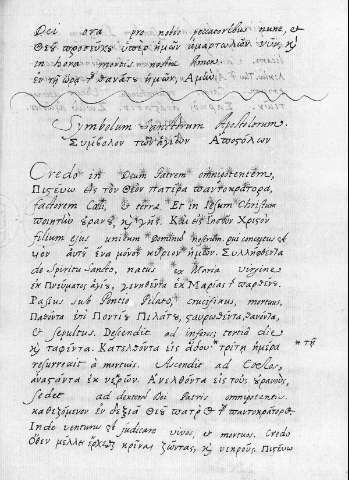 Dei ora pro nobis peccatoribus nunc, et
Θεῦ προσεύχε ὑπὲρ ἡμῶν ἁμαρτωλῶν νῦν, κ̀
in hora mortis nostræ Amen.
ἐν τῇ ὥρᾳ θανάτε ἡμῶν, Ἀμήν.
Symbolum Sanctorum Apostolorum.
Σύμβολον τῶν ἁγίων Ἀποστόλων
Credo in Deum Patrem omnipotentem,
Πιςεύω εἰς τὸν Θεὸν πατέρα παντοκράτορα,
factorem Cœli, et terræ Et in Iesum Christum
ποιητὴν ἐρανῦ, κ̀ γῆς. Καὶ εἰς Ἰησῦν Χριςὸν
filium ejus unicum Dominum nostrum, qui conceptus est
υἱὸν αὐτῦ ἕνα μόνον κύριον ἡμῶν. Συλληφθέντα
de Spiritu Sancto, natus ex Maria virgine
ἐκ Πνεύματος ἁγίε, γεννηθέντα ἐκ Μαρίας παρθένε.
Passus sub Pontio Pilato, crucifixus, mortuus,
Παθόντα ἐπὶ Ποντίε Πιλάτε, ςαυρωθέντα, θανόντα,
et sepultus. Descendit ad inferos; tertia die
κ̀ ταφέντα. Κατελθόντα εἰς ἅδου τρίτῃ ἡμέρᾳ * τῇ
resurrexit à mortuis. Ascendit ad Cœlos,
ἀναςάντα ἐκ νεκρῶν. Ἀνελθόντα εἰς τοὺς ἐρανούς,
sedet ad dexteram Dei Patris omnipotentis
καθεζόμενον ἐν δεξιᾷ Θεῦ πατρὸς παντοκράτορος.
Inde venturus est judicare vivos, et mortuos. Credo
Ὅθεν μέλλει ἔρχεσθαι κρῖναι ζῶντας, κ̀ νεκρούς. Πιςεύω